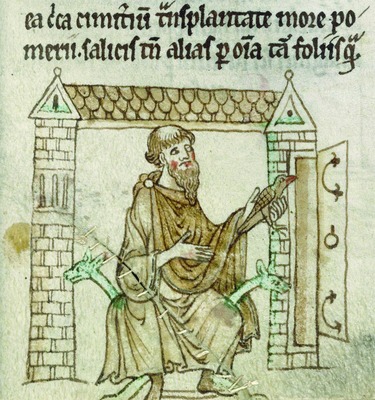 ea c̄ca cimit̄iū t̄nsplantate more po
merii. salicis tn̄ alias ꝑ oīa tā foliis q̄